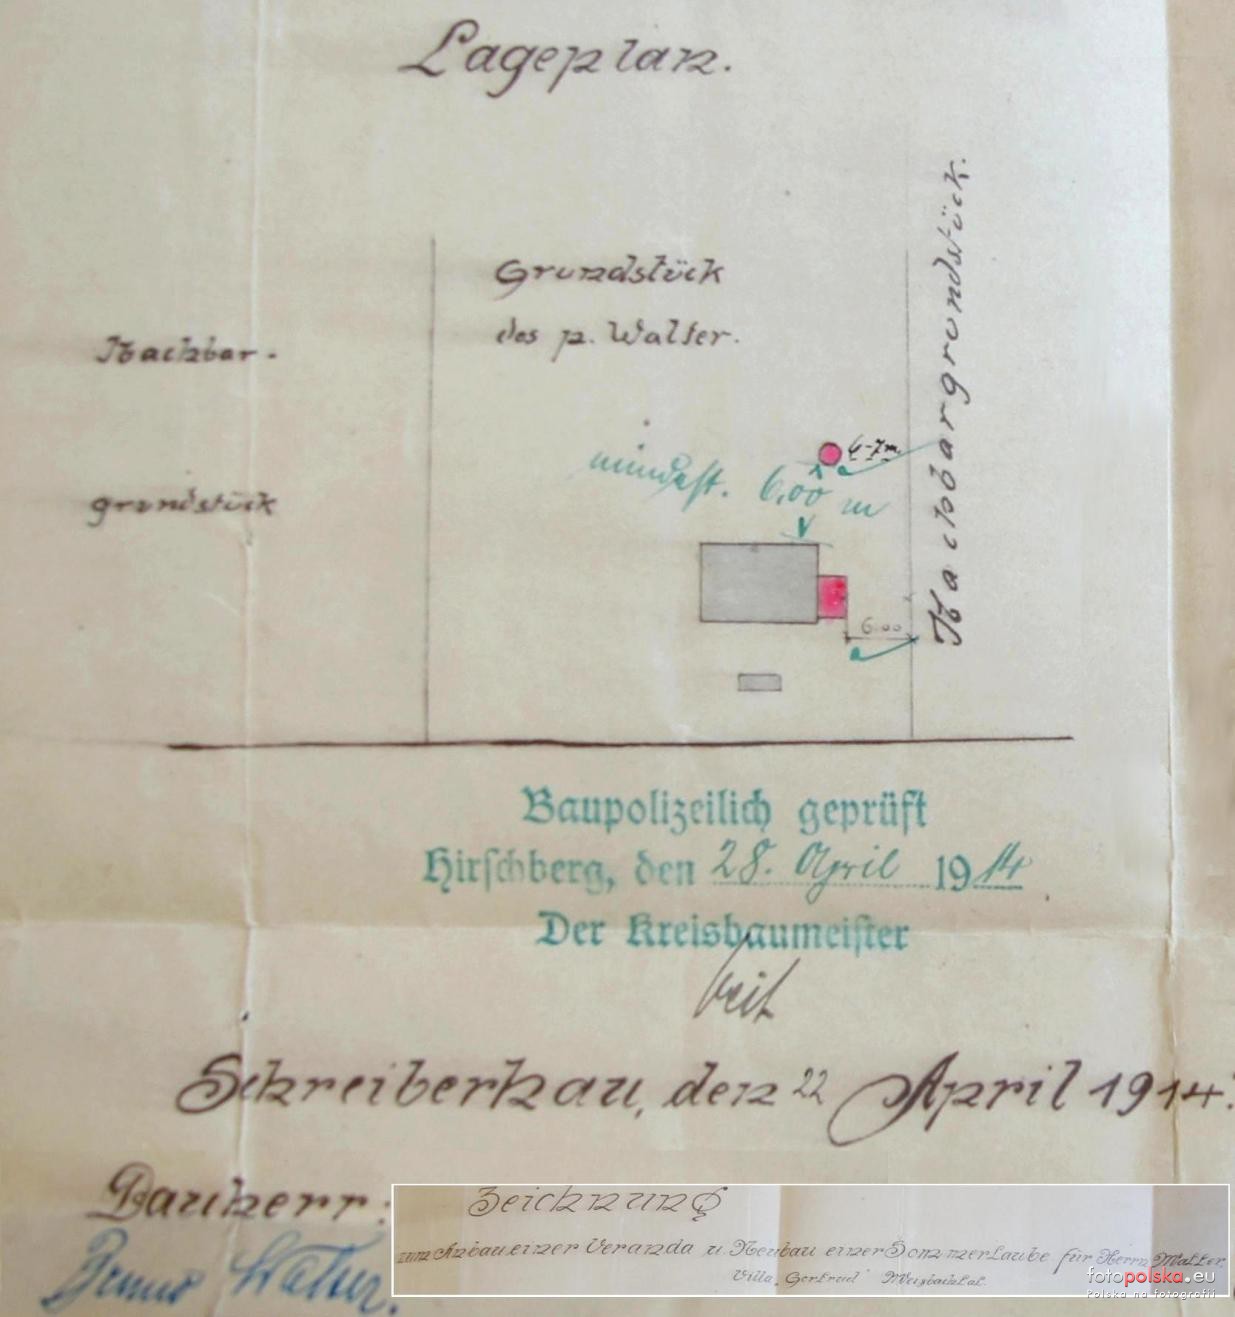 Lageplan.
Grundstück
des p. Walter.
Nachbar-
grundstück
Nachbargrundstück.
6-7m.
mindest. 6,00 m
6.00
Baupolizeilich geprüft
Hirschberg, den 28. April 1914
Der Kreisbaumeister
Schreiberhau, den 22 April 1914.
Bauherr:
Bruno Walter.
Zeichnung
zum Anbau einer Veranda u. Neubau einer Sommerlaube für Herrn Walter,
Villa "Gertrud"
fotopolska.eu
Polska na fotografii